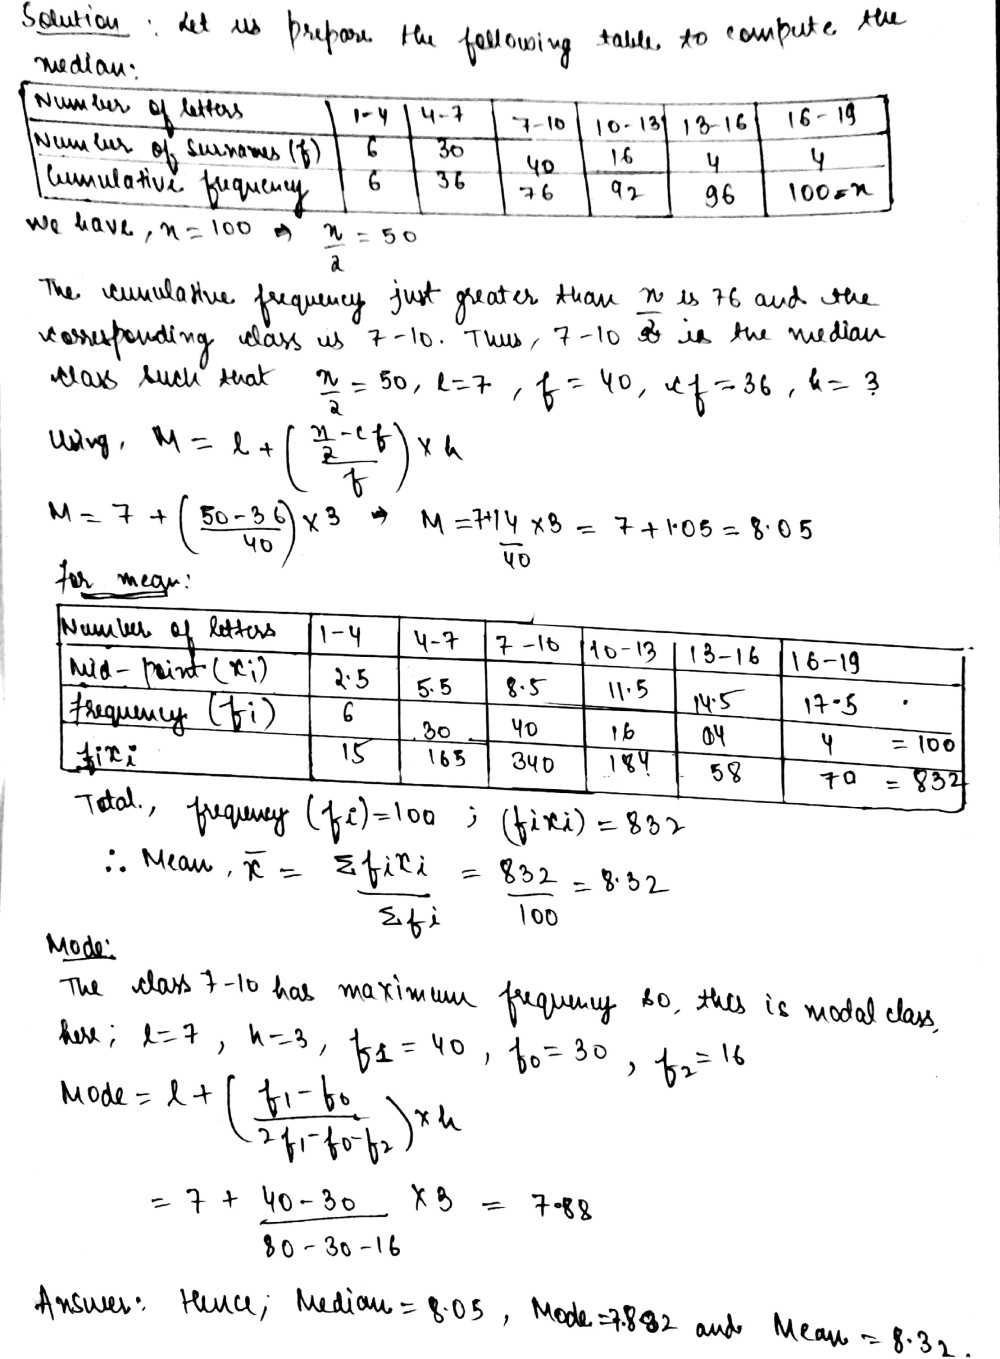 Solution : Let us prepare the following table to compute the
median:
Number of letters 1-4 4-7 7-10 10-13 13-16 16-19
Number of surnames (f) 6 30 40 16 4 4
Cumulative frequency 6 36 76 92 96 100=n
We have, n=100 ⇒ n/2 = 50
The cumulative frequency just greater than n/2 is 76 and the
corresponding class is 7-10. Thus, 7-10 is the median
class such that n/2 = 50, l=7, f = 40, cf=36, h= 3
Using, M = l + ((n/2 - cf)/f) × h
M = 7 + ((50-36)/40) × 3 ⇒ M = 7+14/40 × 3 = 7 + 1.05 = 8.05
For mean:
Number of letters 1-4 4-7 7-10 10-13 13-16 16-19
Mid-point (xi) 2.5 5.5 8.5 11.5 14.5 17.5
frequency (fi) 6 30 40 16 04 4 = 100
fixi 15 165 340 184 58 70 = 832
Total, frequency (fi)=100 ; (fixi) = 832
∴ Mean, x̄ = Σfixi/Σfi = 832/100 = 8.32
Mode:
The class 7-10 has maximum frequency so, this is modal class,
here; l=7, h=3, f1 = 40, f0=30, f2=16
Mode = l + ((f1-f0)/(2f1-f0-f2)) × h
= 7 + (40-30)/(80-30-16) × 3 = 7.88
Answer: Hence; Median = 8.05, Mode=7.882 and Mean = 8.32.